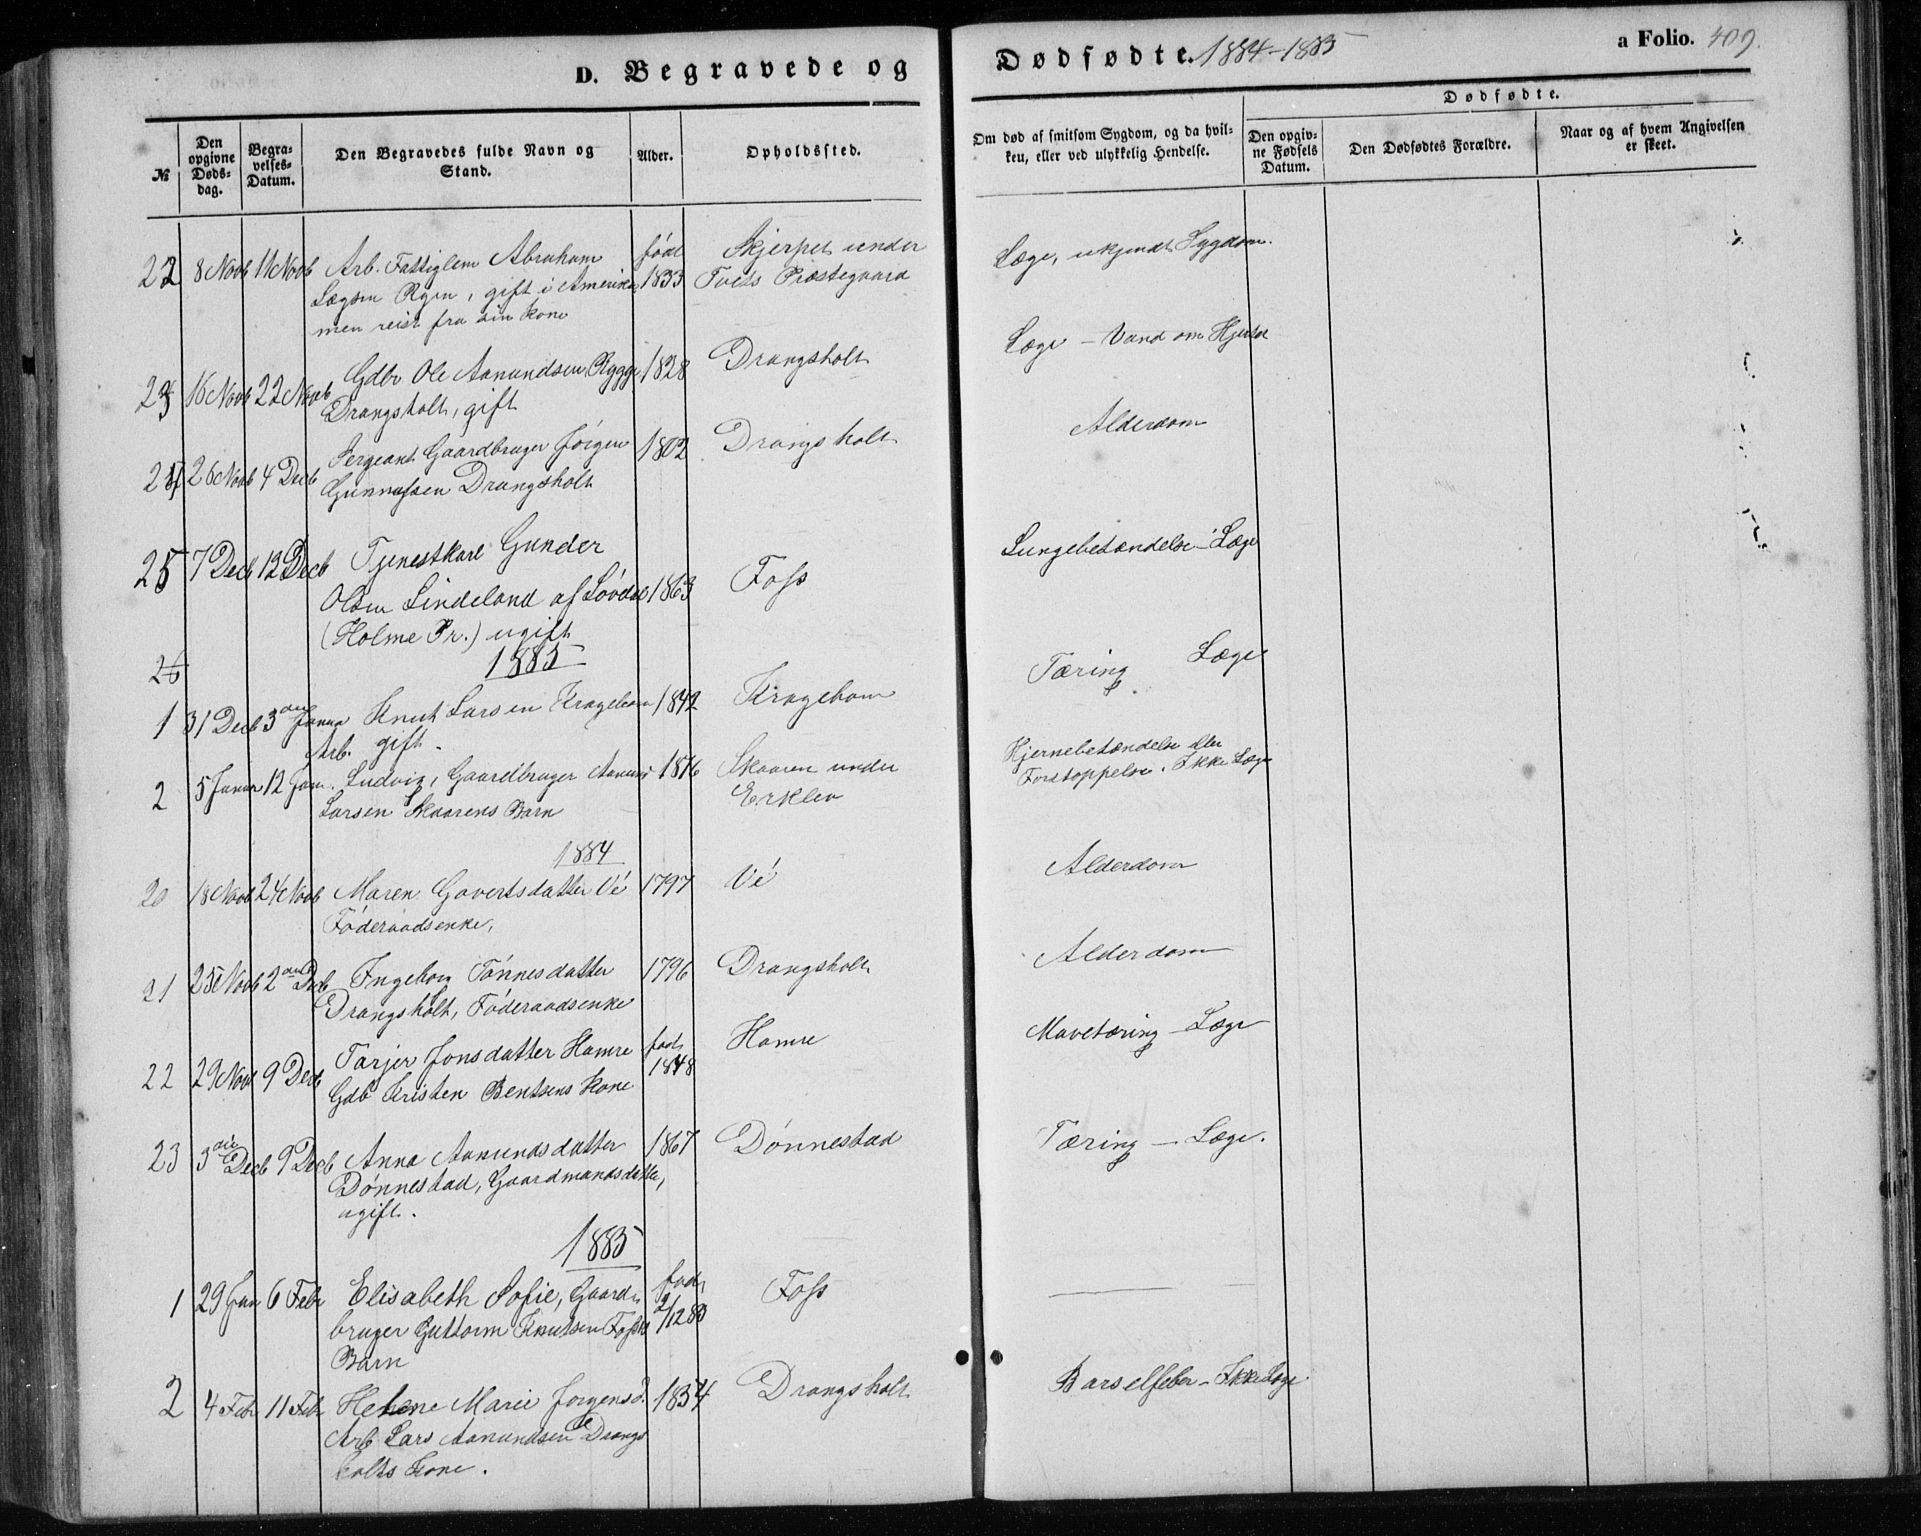 D. Begravede og Dødfødte. 1884-1885 a Folio. 409.
№
Den opgivne Døds-dag.
Begra-velses-Datum.
Den Begravedes fulde Navn og Stand.
Alder.
Opholdssted.
Om død af smitsom Sygdom, og da hvil-
ken, eller ved ulykkelig Hendelse.
Dødfødte.
Den opgiv-ne Fødsels Datum.
Den Dødfødtes Forældre.
Naar og af hvem Angivelsen er skeet.
22 8 Novb 11 Novb Arb. Fattiglem Abraham født Skjerpet under Læge, ukjendt Sygdom.
gift i Amerika 1833 Tveits Præstegaard
men reist fra sin kone
23 16 Novb 22 Novb Gdbr Ole Aanundsen Rygge 1828 Drangsholt Læge - Vand om Hjertet
Drangsholt, gift
24 26 Novb 4 Decb Sergeant Gaardbruger Jörgen 1802 Drangsholt Alderdom
Gunnufsen Drangsholt
25 7 Decb 12 Decb Tjenestkarl Gunder
Olsen Lindeland af Lövdal 1863 Foss Lungebetændelse - Læge
(Holme Pr.) ugift
26
1885
1 31 Decb 3die Janua Knut Larsen Kragebom 1842 Kragebom Tæring Læge
Arb. gift.
2 5 Januar 12 Jan. Ludvig, Gaardbruger Aanund 1876 Skaaren under Hjernebetændelse eller
Larsen Skaarens Barn Erklev Forstoppelse. Ikke Læge
1884
20 18 Novb 24 Novb Maren Govertsdatter Vé 1797 Vé Alderdom
Föderaadsenke,
21 25 Novb 2den Decb Ingeborg Tönnesdatter 1796 Drangsholt Alderdom
Drangsholt, Föderaadsenke
22 29 Novb 9 Decb Tarjer Jonsdatter Hamre født Hamre Mavetæring - Læge
Gdb Kristen Bentsens Kone 1848
23 3die Decb 9 Decb Anna Aanundsdatter 1867 Dönnestad Tæring - Læge.
Dönnestad, Gaardmandsdatter,
ugift.
1885
1 29 Jan 6 Febr Elisabeth Sofie, Gaard- født Foss
bruger Guttorm Knutsen Foss's 2/12 83
Barn
2 4 Febr 11 Febr Helene Marie Jorgensd. 1854 Drangsholt Barselfeber - Ikke Læge.
Arb Lars Aanundsen Drangs
holts Kone.